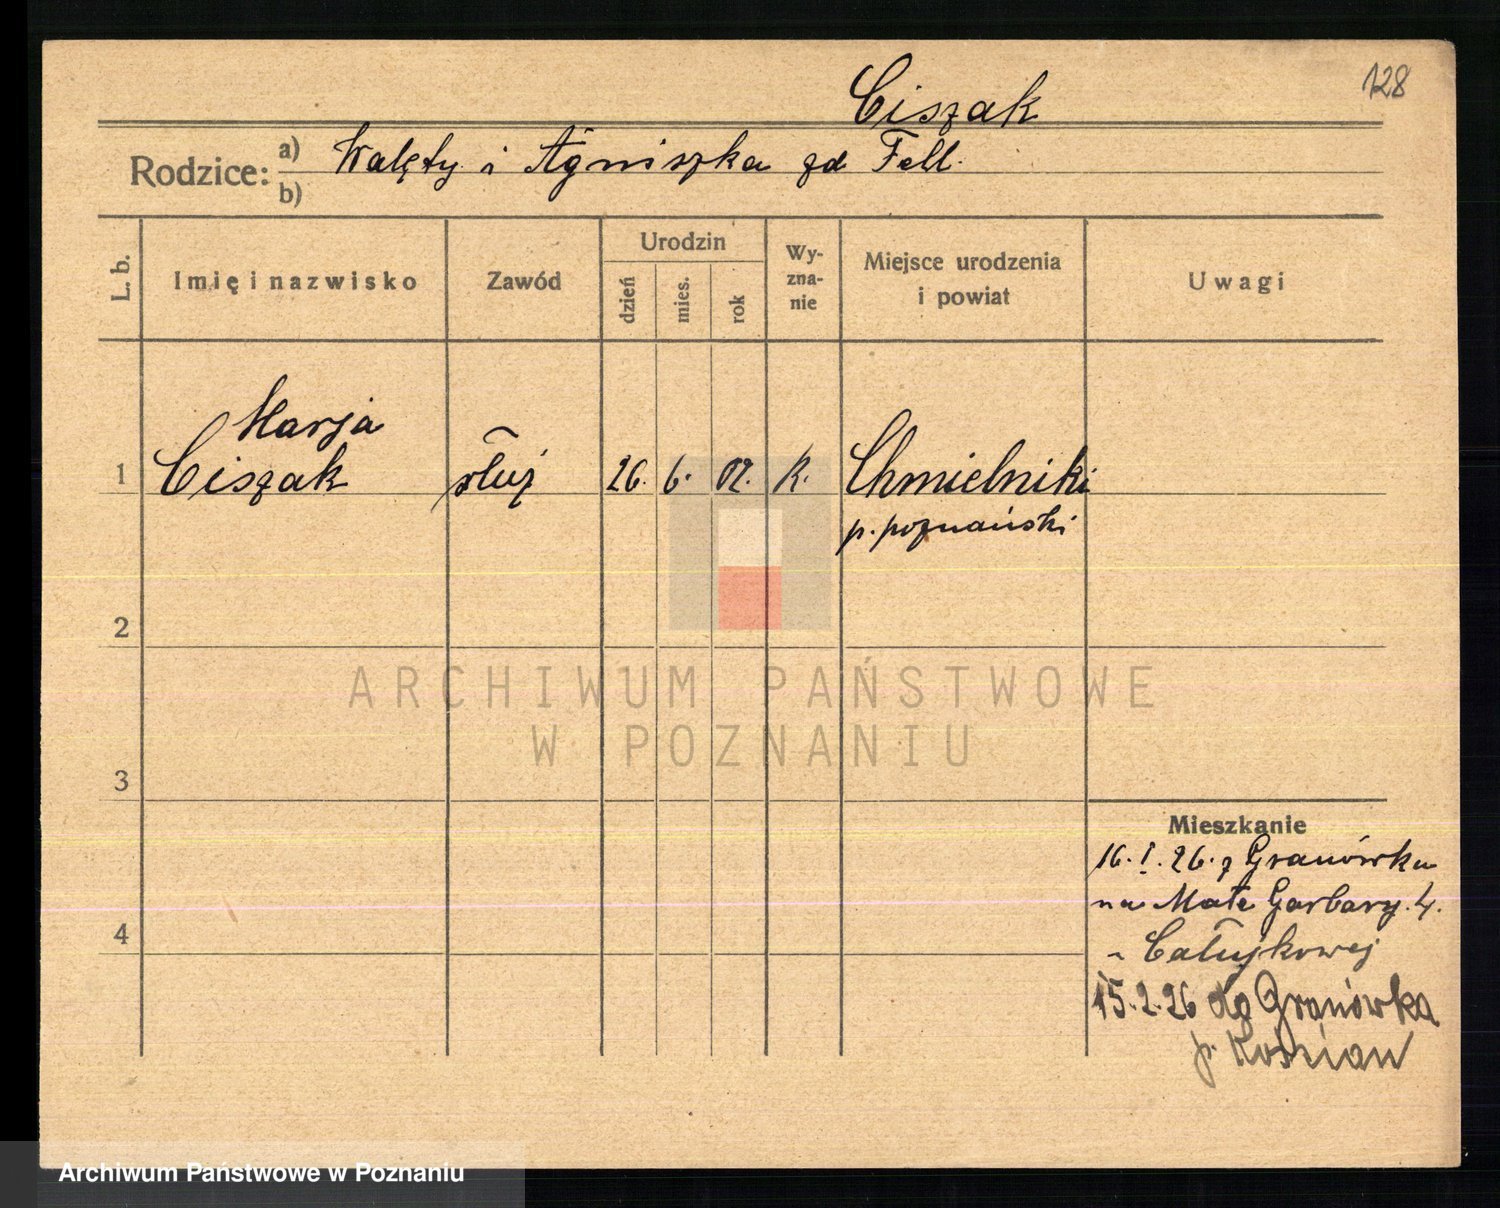 128
Ciszak
Rodzice: a) Walęty i Agniszka zd Fell.
b)
L. b.
Imię i nazwisko
Zawód
Urodzin
dzień
mies.
rok
Wy-
zna-
nie
Miejsce urodzenia
i powiat
Uwagi
Marja
1 Ciszak służ 26. 6. 02. K. Chmielniki
p. poznański
2
3
4
Mieszkanie
16. I. 26. z Granówka
na Małe Garbary. 4.
15. 2. 26 do Granówka
p. Kościan
ARCHIWUM PAŃSTWOWE
W POZNANIU
Archiwum Państwowe w Poznaniu